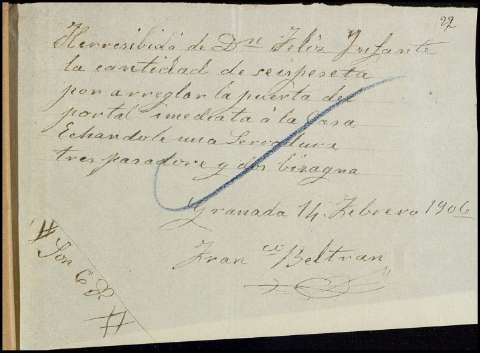 22
He rresibido de Dn Feliz Infante
la cantidad de seispeseta
por arreglar la puerta del
portal imediata á la Casa
Echandole una Serradura
tres pasadore y dos bizagna
Granada 14 Febrero 1906
Fran co Beltran
# Son 6 P. #